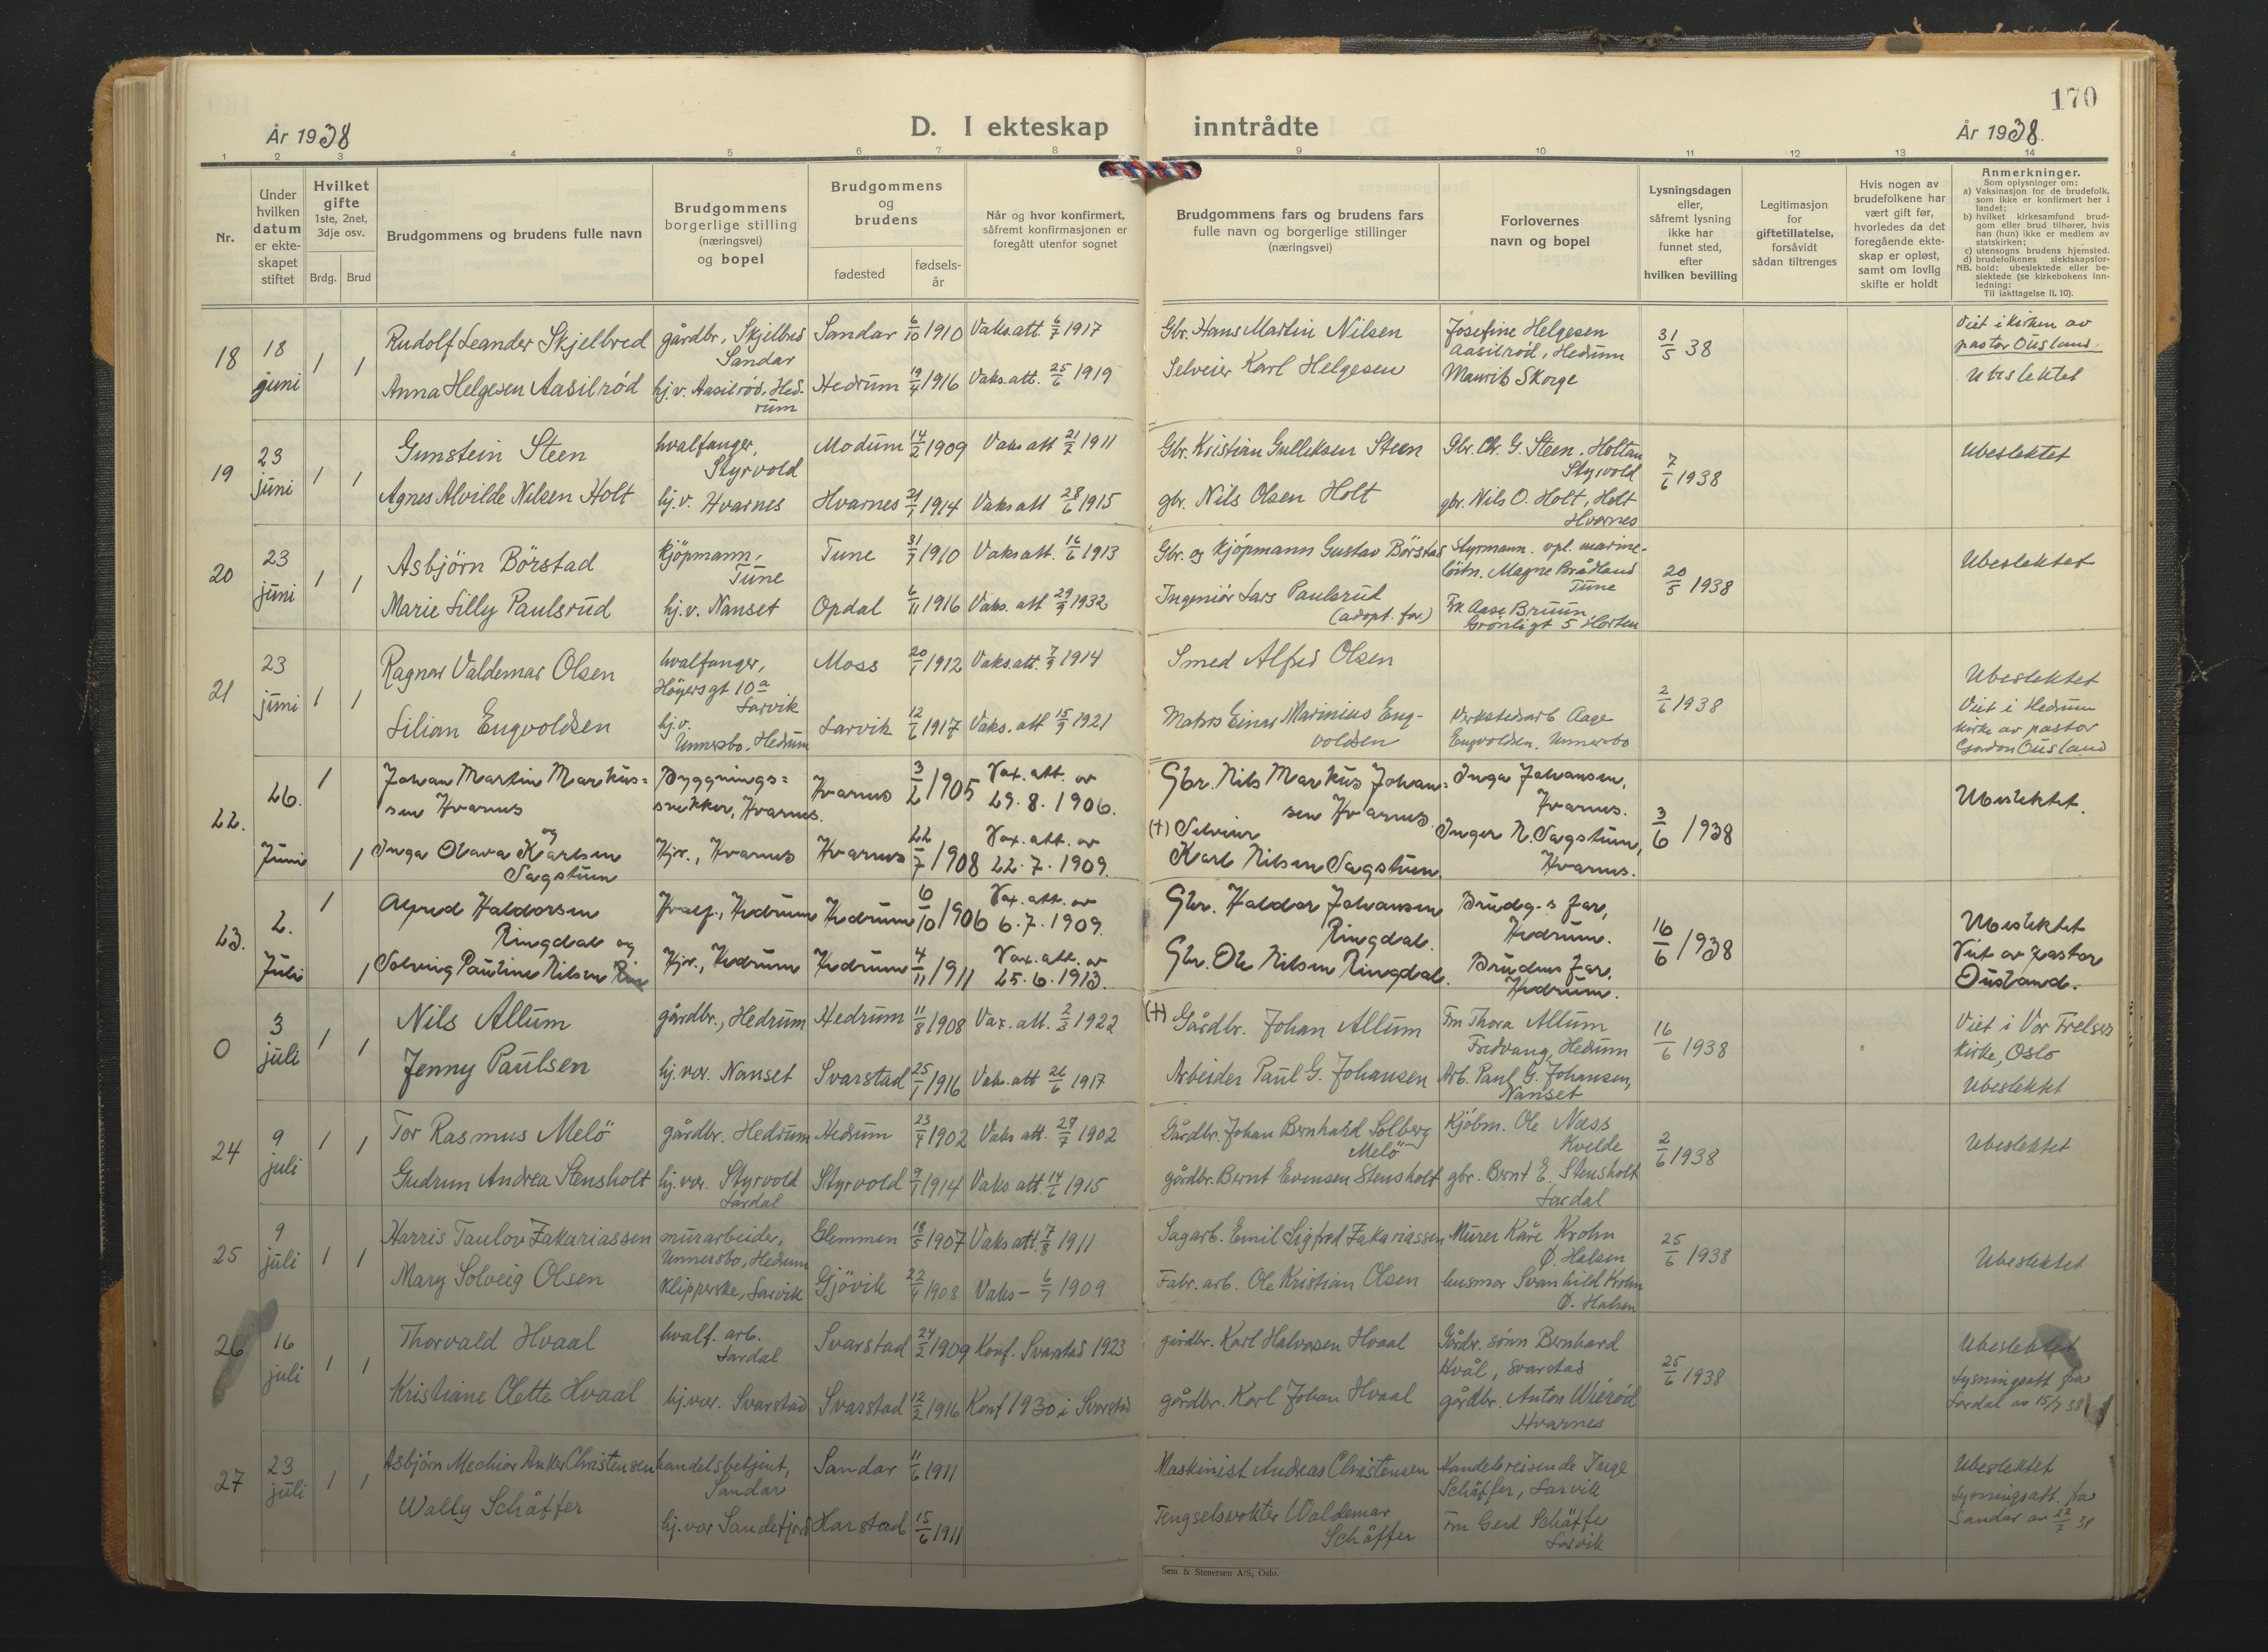 170
År 1938
D. I ekteskap inntrådte
År 1938.
1 2 3 4 5 6 7 8 9 10 11 12 13 14
Nr.
Under
hvilken
datum
er ekte-
skapet
stiftet
Hvilket
gifte
1ste, 2net,
3dje osv.
Brdg. Brud
Brudgommens og brudens fulle navn
Brudgommens
borgerlige stilling
(næringsvei)
og bopel
Brudgommens
og
brudens
fødested
fødsels-
år
Når og hvor konfirmert,
såfremt konfirmasjonen er
foregått utenfor sognet
Brudgommens fars og brudens fars
fulle navn og borgerlige stillinger
(næringsvei)
Forlovernes
navn og bopel
Lysningsdagen
eller,
såfremt lysning
ikke har
funnet sted,
efter
hvilken bevilling
Legitimasjon
for
giftetillatelse,
forsåvidt
sådan tiltrenges
Hvis nogen av
brudefolkene har
vært gift før,
hvorledes da det
foregående ekte-
skap er opløst,
samt om lovlig
skifte er holdt
Anmerkninger.
Som oplysninger om:
a) Vaksinasjon for de brudefolk,
som ikke er konfirmert her i
landet;
b) hvilket kirkesamfund brud-
gom eller brud tilhører, hvis
han (hun) ikke er medlem av
statskirken;
c) utensogns brudens hjemsted.
d) brudefolkenes slektskapsfor-
NB. hold: ubeslektede eller be-
slektede (se kirkebokens inn-
ledning:
Til iakttagelse II. 10).
18
18
juni
1 1
Rudolf Leander Skjelbred
Anna Helgesen Aasilrød
gårdbr, Skjelbred
Sandar
hj.v. Aasilrød, Hed-
rum
Sandar 6/10 1910 Vaks.att. 6/7 1917
Hedrum 19/4 1916 Vaks.att. 25/6 1919
Gbr. Hans Martin Nilsen
Selveier Karl Helgesen
Josefine Helgesen
Aasilrød, Hedrum
Maurits Skorge
31/5 38
Viet i kirken av
pastor Ousland
Ubeslektet
19
23
juni
1 1
Gunstein Steen
Agnes Alvilde Nilsen Holt
hvalfanger,
Styrvold
hj.v. Hvarnes
Modum 14/2 1909 Vaks att 21/7 1911
Hvarnes 21/7 1914 Vaks att 28/6 1915
Gbr. Kristian Gulliksen Steen
gbr. Nils Olsen Holt
Gbr. Chr. G. Steen. Holtan
Styrvold
gbr. Nils O. Holt, Holt
Hvarnes
7/6 1938
Ubeslektet
20
23
juni
1 1
Asbjörn Börstad
Marie Lilly Paulsrud
kjöpmann,
Tune
hj.v. Nanset
Tune 31/7 1910 Vaks att. 16/6 1913
Opdal 6/11 1916 Vaks. att 29/9 1932
Gbr. og kjöpmann Gustav Börstad
Ingeniör Lars Paulsrud
(adopt. far.)
Styrmann. vpl. marine-
löitn. Magne Brådland
Tune
Frk Aase Bruun
Grönligt 5 Horten
20/5 1938
Ubeslektet
21
23
juni
1 1
Ragnar Valdemar Olsen
Lilian Engvoldsen
hvalfanger,
Höyersgt 10a
Larvik
hj.v.
Unnersbo, Hedrum
Moss 20/1 1912 Vaks.att. 7/9 1914
Larvik 12/6 1917 Vaks. att 15/9 1921
Smed Alfred Olsen
Matros Einar Marinius Eng-
voldsen
Verkstedsarb Aage
Engvoldsen, Unnersbo
2/6 1938
Ubeslektet
Viet i Hedrum
kirke av pastor
Gordon Ousland
22.
26.
Juni
1 1
Johan Martin Markus=
sen Hvarnes
og
Inga Olava Karlsen
Sagstuen
Bygnings=
snekker, Hvarnes.
Hjv., Hvarnes
Hvarnes 3/2 1905 Vax. att. av
29. 8. 1906.
Hvarnes 22/7 1908 Vax. att. av
22. 7. 1909.
Gbr. Nils Markus Johan=
sen Hvarnes.
(+) Selveier
Karl Nilsen Sagstuen.
Inga Johansen,
Hvarnes.
Inger N. Sagstuen,
Hvarnes.
3/6 1938
Ubeslektet.
23.
2.
Juli
1 1
Alfred Haldorsen
Ringdal og
Solveig Pauline Nilsen
Hvalf., Hedrum
Hjv., Hedrum
Hedrum 6/10 1906 Vax. att. av
6. 7. 1909.
Hedrum 4/11 1911 Vax. att. av
25. 6. 1913.
Gbr. Haldor Johansen
Ringdal.
Gbr. Ole Nilsen Ringdal.
Brudg.s far,
Hedrum.
Brudens far,
Hedrum.
16/6 1938
Ubeslektet
Viet av pastor
Ousland.
0
3
juli
1 1
Nils Allum
Jenny Paulsen
gårdbr., Hedrum
hj.vær. Nanset
Hedrum 11/8 1908 Vax. att. 2/3 1922
Svarstad 25/1 1916 Vaks. att 26/6 1917
(+) Gårdbr. Johan Allum
Arbeider Paul G. Johansen
Fru Thora Allum
Fredvang, Hedrum
Arb. Paul G. Johansen,
Nanset
16/6 1938
Viet i Vor Frelsers
kirke, Oslo
Ubeslektet
24
9
juli
1 1
Tor Rasmus Melö
Gudrun Andrea Stensholt
gårdbr. Hedrum
hj.vær. Styrvold
Lardal
Hedrum 23/4 1902 Vaks att. 28/7 1902
Styrvold 9/1 1914 Vaks att. 14/6 1915
Gårdbr. Johan Bernhard Solberg
Melö
gårdbr. Bernt Evensen Stensholt
Kjöbm. Ole Næss
Kvelde
gbr. Bernt E. Stensholt
Lardal
2/6 1938
Ubeslektet
25
9
juli
1 1
Harris Taulov Zakariassen
Mary Solveig Olsen
murarbeider,
Unnersbo, Hedrum
Klipperske, Larvik
Glemmen 18/5 1907 Vaks att. 7/8 1911
Gjövik 22/4 1908 Vaks – 6/7 1909
Sagarb. Emil Sigfred Zakariassen
Fabr. arb. Ole Kristian Olsen
Murer Kåre Krohn
Ø. Halsen
husmor Svanhild Krohn
Ø. Halsen
25/6 1938
Ubeslektet
26
16
juli
1 1
Thorvald Hvaal
Kristiane Olette Hvaal
hvalf. arb.
Lardal
hj.vær. Svarstad
Svarstad 24/2 1909 Konf. Svarstad 1923
Svarstad 12/2 1916 Konf 1930 i Svarstad
gårdbr. Karl Halvorsen Hvaal
gårdbr. Karl Johan Hvaal
Gårdbr. sönn Bernhard
Hvål, Svarstad
gårdbr. Anton Wierød
Hvarnes
25/6 1938
Ubeslektet
Lysningsatt fra
Lardal av 15/7 38
27
23
juli
1 1
Asbjörn Mechior Anker Christensen
Wally Schäffer
handelsbetjent,
Sandar
hj.vær Sandefjord
Sandar 11/6 1911
Harstad 15/6 1911
Maskinist Andreas Christensen
Fengselsvokter Waldemar
Schäffer
Handelsreisende Inge
Schäffer, Larvik
Fru Gerd Schäffer
Larvik
Ubeslektet
Lysningsatt. fra
Sandar av 22/7 38
Sem & Stenersen A/S, Oslo.